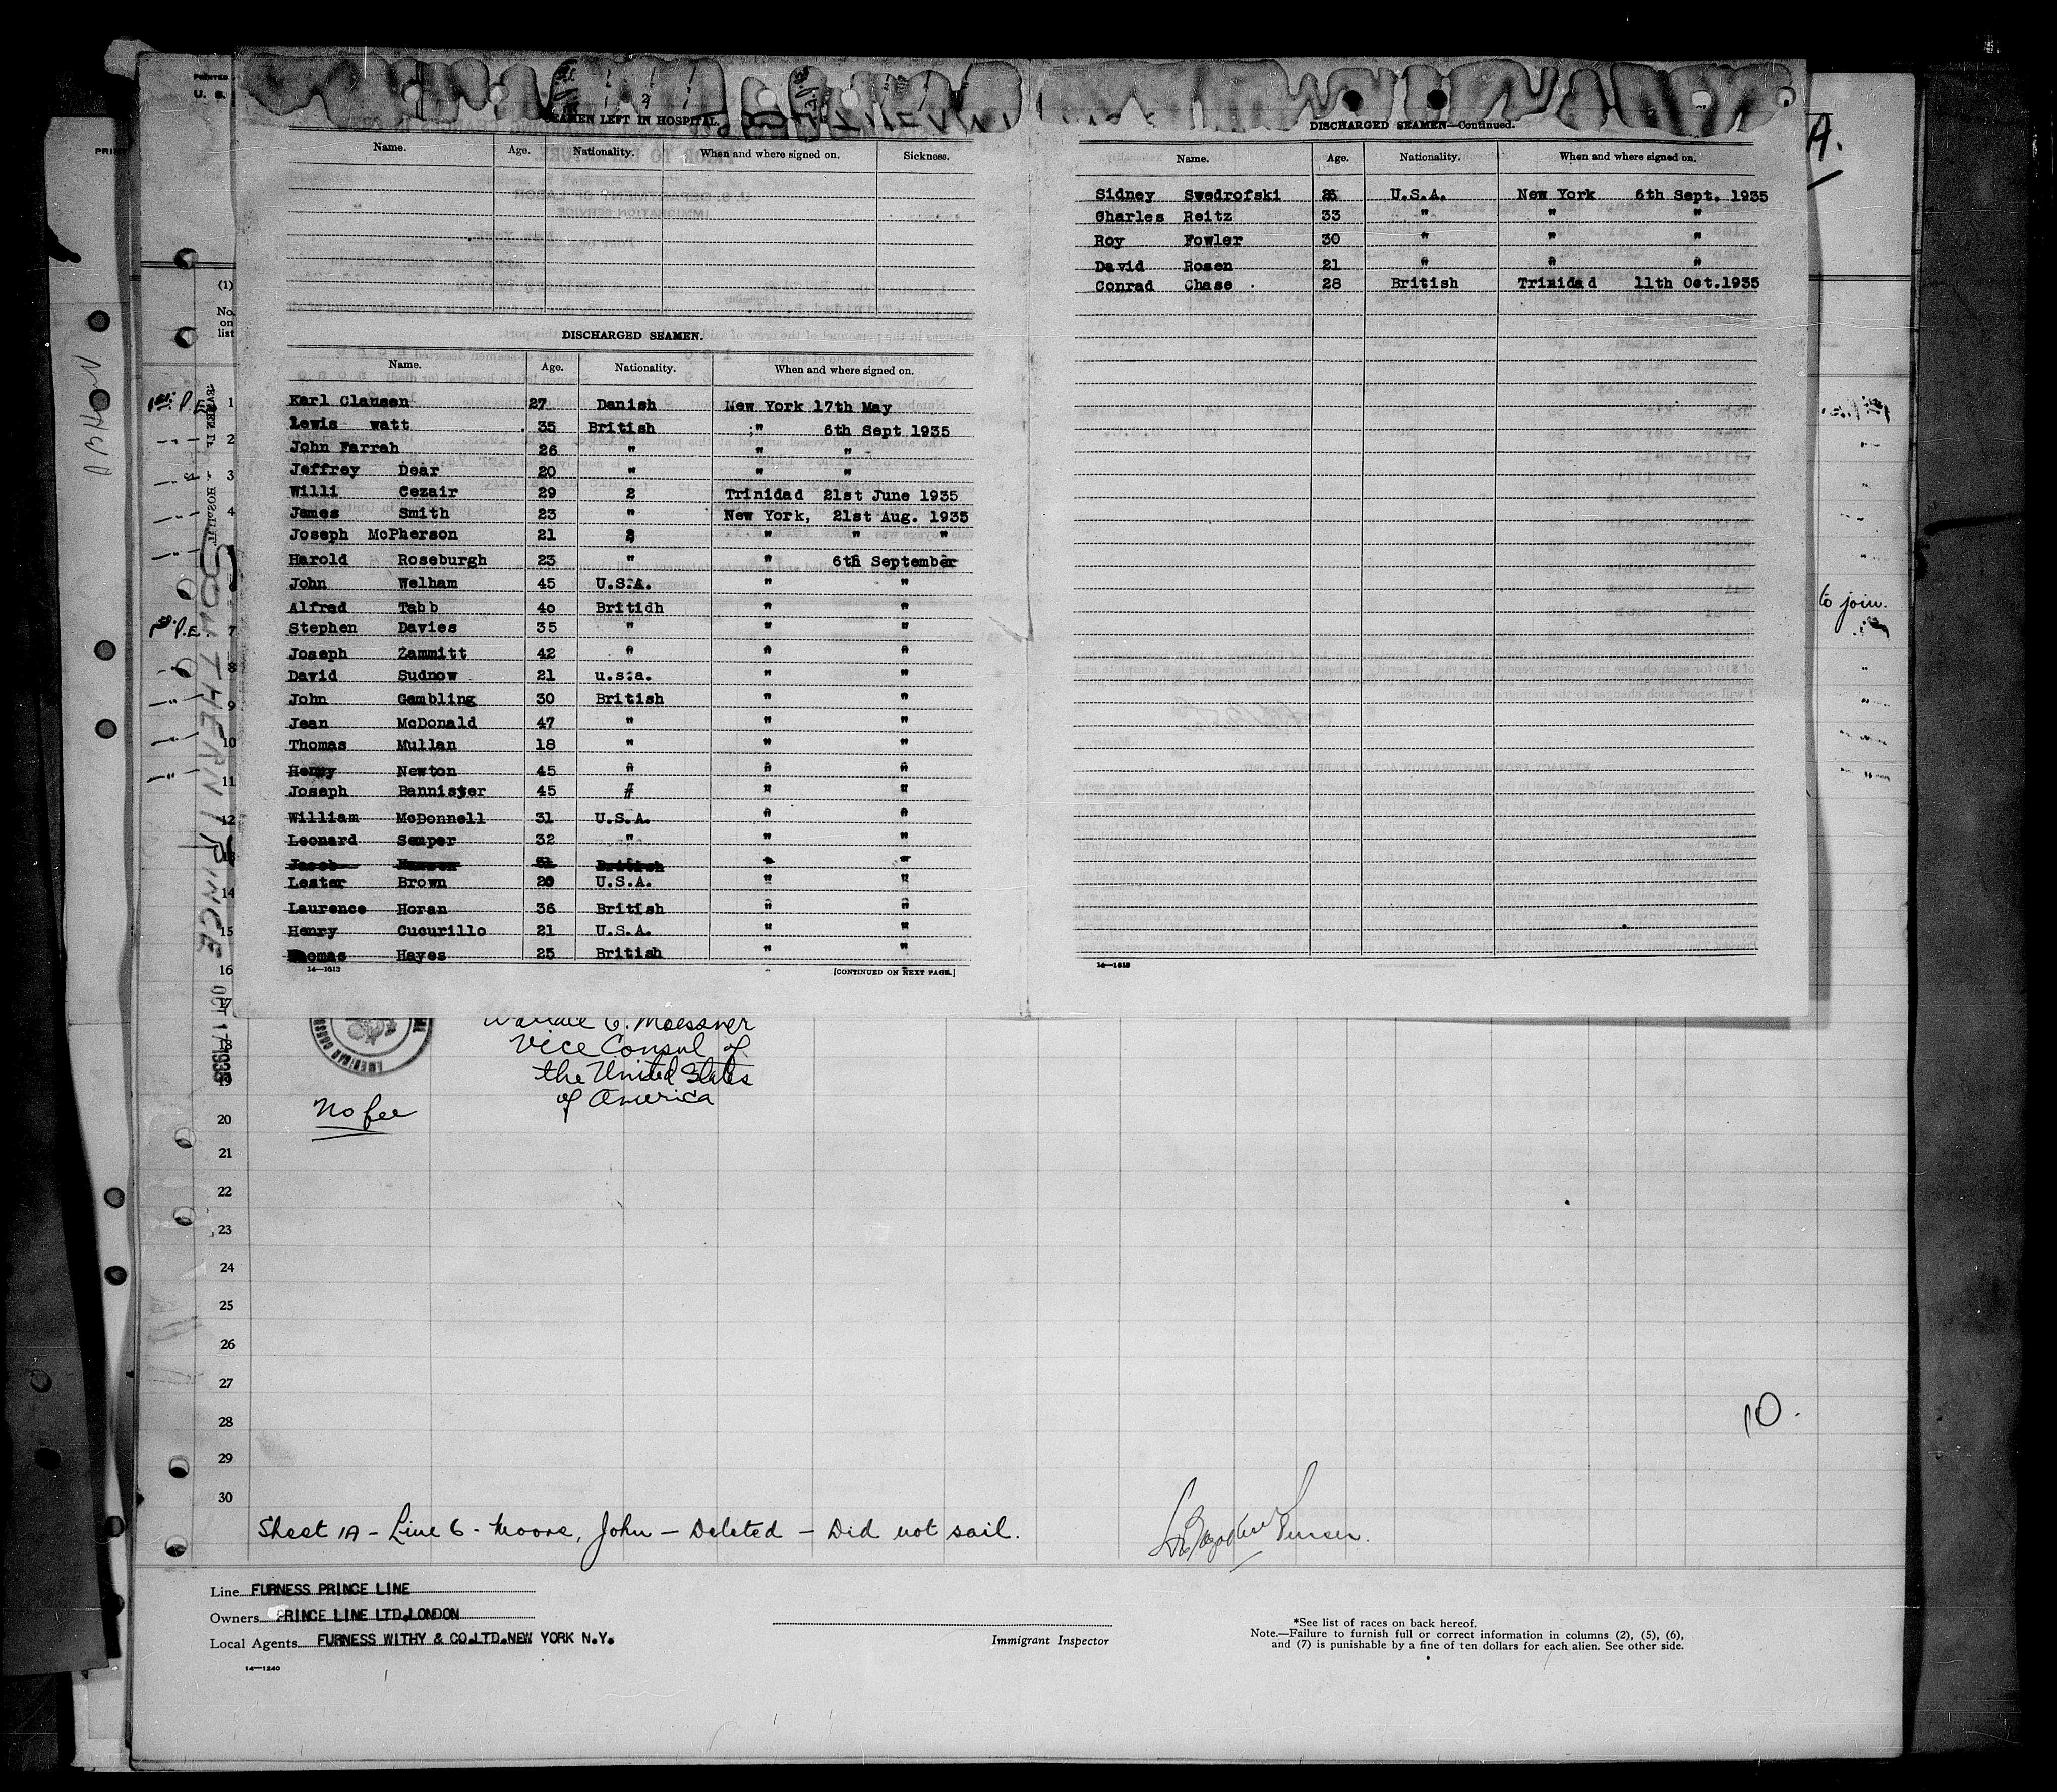 SEAMEN LEFT IN HOSPITAL.
Name. Age. Nationality. When and where signed on. Sickness.
DISCHARGED SEAMEN.
Name. Age. Nationality. When and where signed on.
Karl Clausen 27 Danish New York 17th May
Lewis watt 35 British " 6th Sept 1935
John Farrah 26 " " "
Jeffrey Dear 20 " " "
Willi Cezair 29 2 Trinidad 21st June 1935
James Smith 23 " New York, 21st Aug. 1935
Joseph McPherson 21 2 " " "
Harold Roseburgh 23 " " 6th September
John Welham 45 U.S.A. " "
Alfred Tabb 40 Britidh " "
Stephen Davies 35 " " "
Joseph Zammitt 42 " " "
David Sudnow 21 u.s.a. " "
John Gambling 30 British " "
Jean McDonald 47 " " "
Thomas Mullan 18 " " "
Henry Newton 45 " " "
Joseph Bannister 45 # " "
William McDonnell 31 U.S.A. " "
Leonard Semper 32 " " "
Jacob 31 British " "
Lester Brown 20 U.S.A. " "
Laurence Horan 36 British " "
Henry Cucurillo 21 U.S.A. " "
Thomas Hayes 25 British " "
14—1613 [CONTINUED ON NEXT PAGE.]
DISCHARGED SEAMEN—Continued.
Name. Age. Nationality. When and where signed on.
Sidney Swedrofski 26 U.S.A. New York 6th Sept. 1935
Charles Reitz 33 " " "
Roy Fowler 30 " " "
David Rosen 21 " " "
Conrad Chase 28 British Trinidad 11th Oct.1935
14—1613
PRINTED
U. S.
PRINT
A.
(1)
No.
on
list
1
2
3
4
7
8
9
10
11
12
13
14
15
16
17
18
19
20
21
22
23
24
25
26
27
28
29
30
SOUTHERN PRINCE
OCT 17 1935
to join.
Wallace E. Moessner
Vice Consul of
the United States
of America
No fee
10.
Sheet 1A - Line 6 - Moore, John - Deleted - Did not sail.
Purser.
Line FURNESS PRINCE LINE
Owners PRINCE LINE LTD.LONDON
Local Agents FURNESS WITHY & CO.LTD.NEW YORK N.Y.
14—1240
Immigrant Inspector
*See list of races on back hereof.
Note.—Failure to furnish full or correct information in columns (2), (5), (6),
and (7) is punishable by a fine of ten dollars for each alien. See other side.